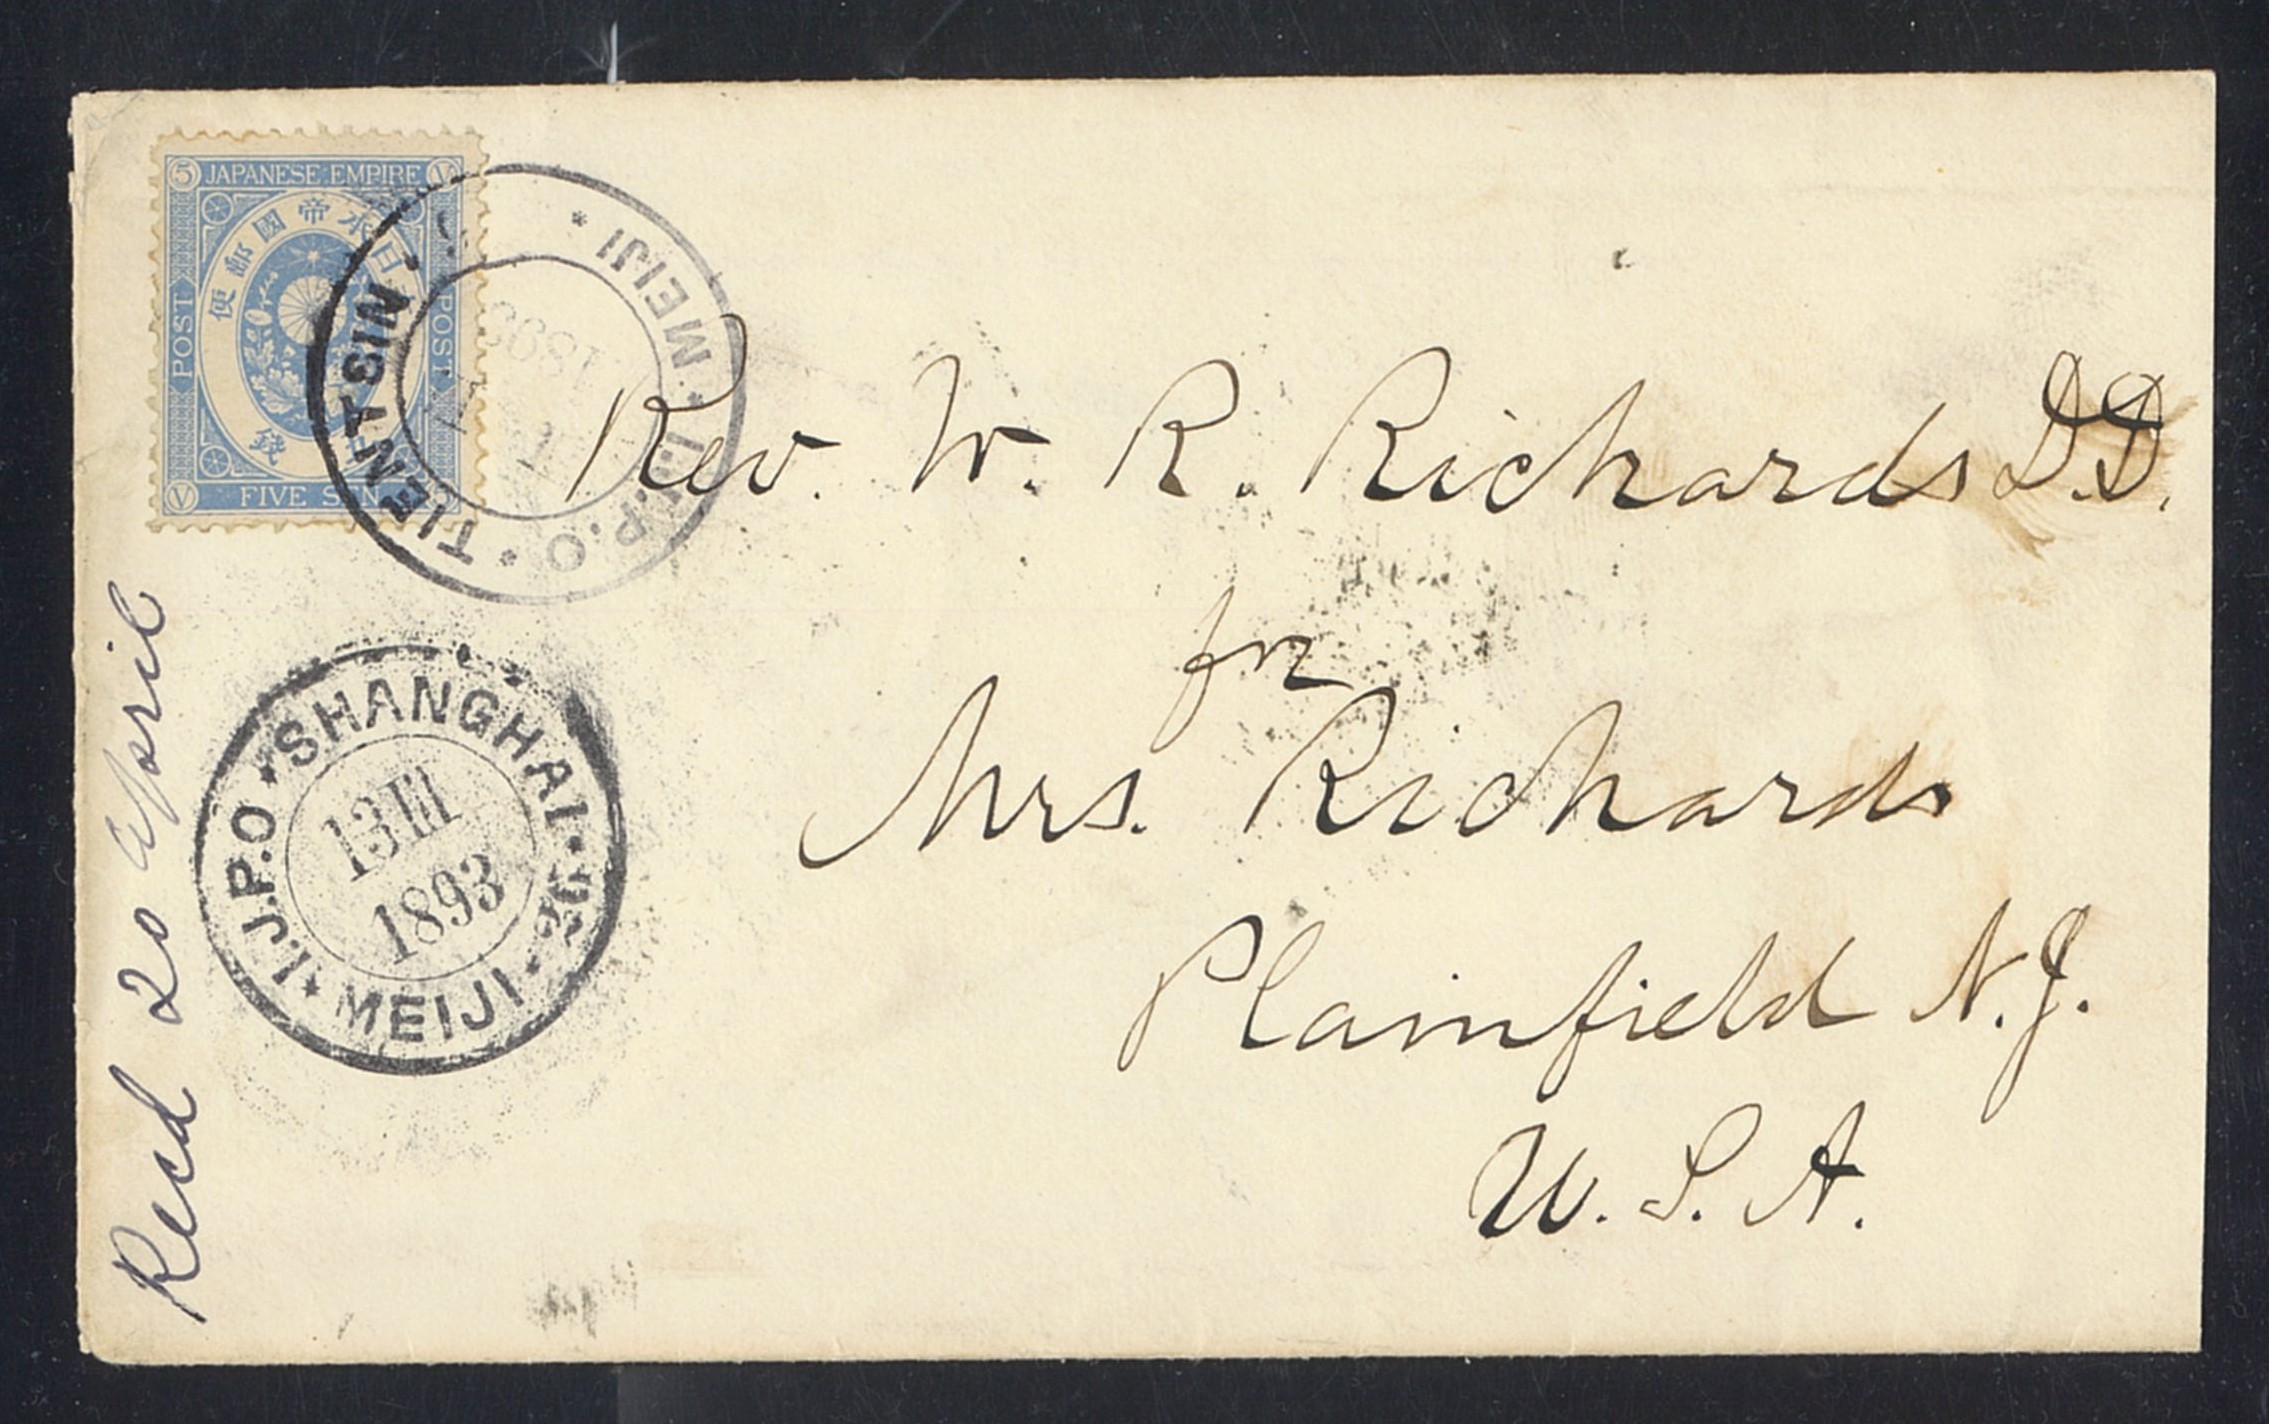 5 JAPANESE EMPIRE V
日本帝國郵便
POST
POST
錢
V FIVE SEN
TIENTSIN
I.J.P.O
MEIJI
1893
Rev. W. R. Richards D.D.
for
Mrs. Richards
Plainfield N.J.
U. S. A.
SHANGHAI
I.J.P.O
13 III
1893
MEIJI 26
Recd 20 April